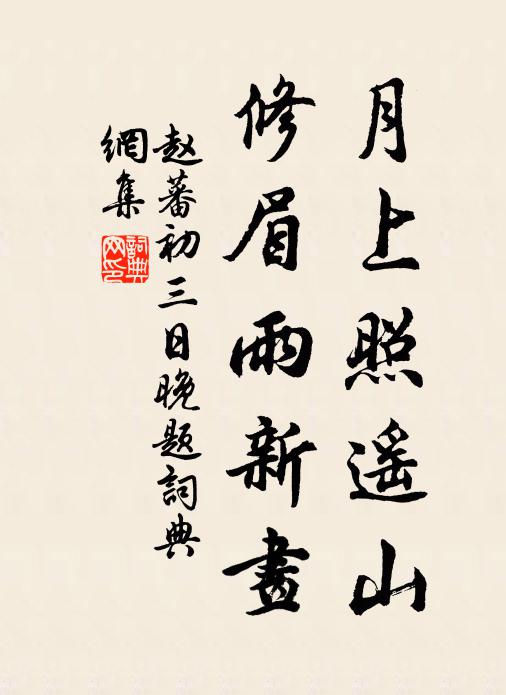 月上照遥山
修眉兩新畫
赵蕃初三日晚题詞典
網集
詞典
网印